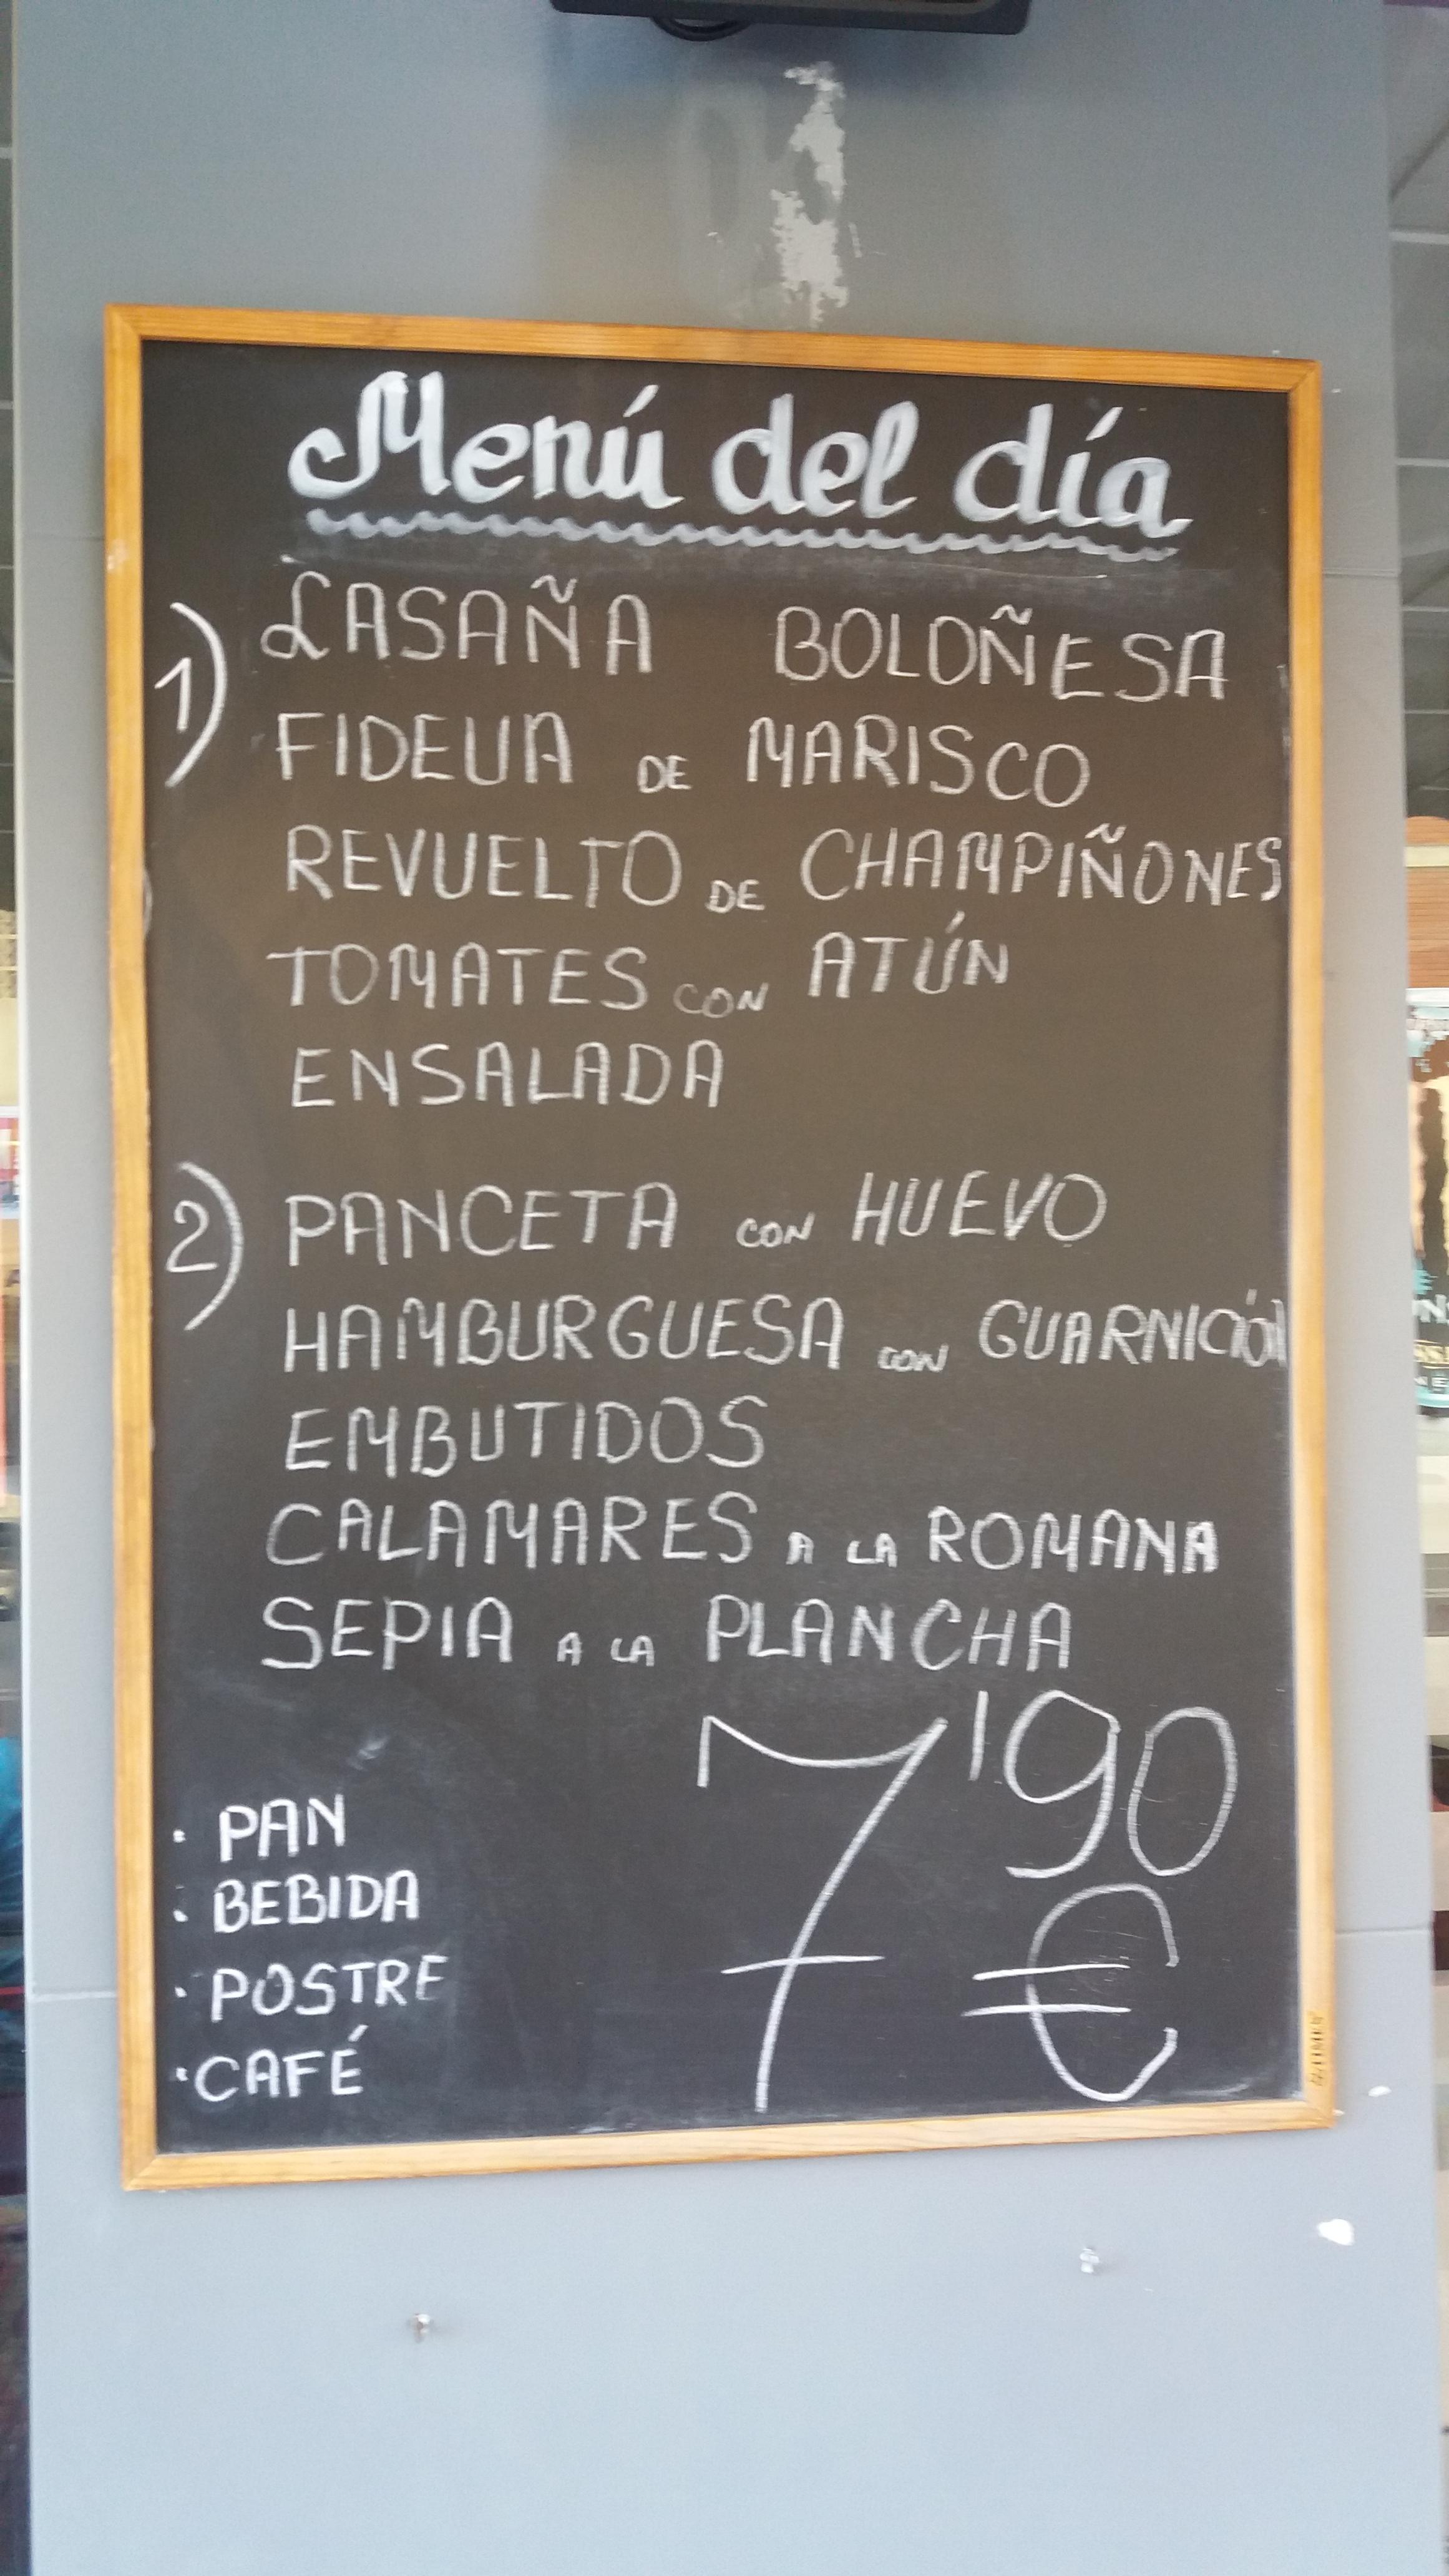 Menú del día
1) LASAÑA BOLOÑESA
FIDEUA DE MARISCO
REVUELTO DE CHAMPIÑONES
TOMATES CON ATÚN
ENSALADA
2) PANCETA CON HUEVO
HAMBURGUESA CON GUARNICIÓN
EMBUTIDOS
CALAMARES A LA ROMANA
SEPIA A LA PLANCHA
7'90 €
· PAN
· BEBIDA
· POSTRE
· CAFÉ